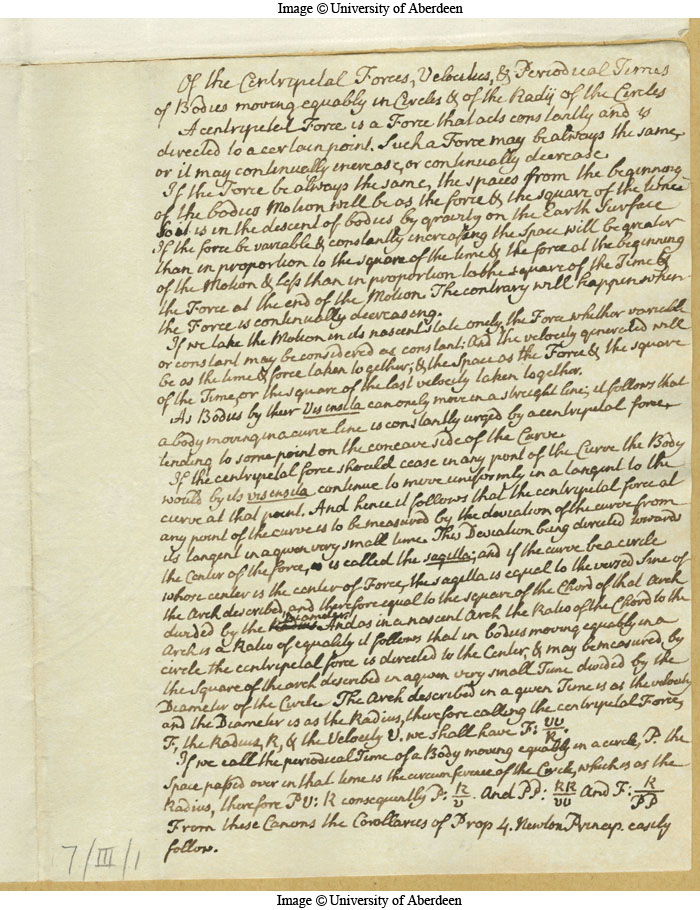 Image © University of Aberdeen
Of the Centripetal Forces, Velocitys, & Periodical Times
of Bodies moving equably in Circles & of the Radij of the Circles
A centripetal Force is a Force that acts constantly and is
directed to a certain point. Such a Force may be always the same,
or it may continually increase, or continually decrease.
If the Force be always the same, the spaces from the beginning
of the bodies Motion will be as the force & the square of the time
So it is in the descent of bodies by gravity on the Earth Surface
If the force be variable & constantly increasing the Space will be greater
than in proportion to the square of the time & the force at the beginning
of the Motion & less than in proportion to the square of the Time &
the Force at the end of the Motion. The contrary will happen when
the Force is continually decreasing.
If we take the Motion in its nascent state onely, the Force whether variable
or constant may be considered as constant: And the velocity generated will
be as the time & force taken together; & the Space as the Force & the square
of the Time, or the square of the last velocity taken together.
As Bodies by their Vis insita can onely move in a streight line; it follows that
a body moving in a curve line is constantly urged by a centripetal force,
tending to some point on the concave side of the Curve.
If the centripetal force should cease in any point of the Curve the Body
would by its vis insita continue to move uniformly in a tangent to the
curve at that point. And hence it follows that the centripetal force at
any point of the curve is to be measured by the deviation of the curve from
its tangent in a given very small time. This Deviation being directed towards
the Center of the force, is called the sagitta; and if the curve be a circle
whose center is the center of Force, the sagitta is equal to the versed sine of
the Arch described, and therefore equal to the square of the Chord of that Arch
divided by the Radius Diameter. And as in a nascent Arch the Ratio of the Chord to the
Arch is a Ratio of equality it follows that in bodies moving equably in a
circle the centripetal force is directed to the Center, & may be measured, by
the Square of the arch described in a given very small Time divided by the
Diameter of the Circle. The Arch described in a given Time is as the velocity
and the Diameter is as the Radius, therefore calling the centripetal Force,
F, the Radius, R, & the Velocity V. we shall have F: VV/R.
If we call the periodical Time of a Body moving equably in a circle, P. the
Space passed over in that time is the circumference of the Circle, which is as the
Radius, therefore PV: R consequently P: R/V. And PP: RR/VV And F: R/PP
From these Canons the Corollaries of Prop 4. Newton Princip. easily
follow.
7/III/1
Image © University of Aberdeen